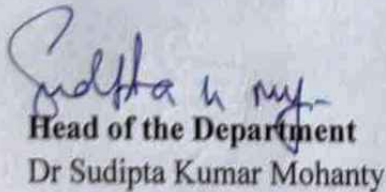 Head of the Department
Dr Sudipta Kumar Mohanty